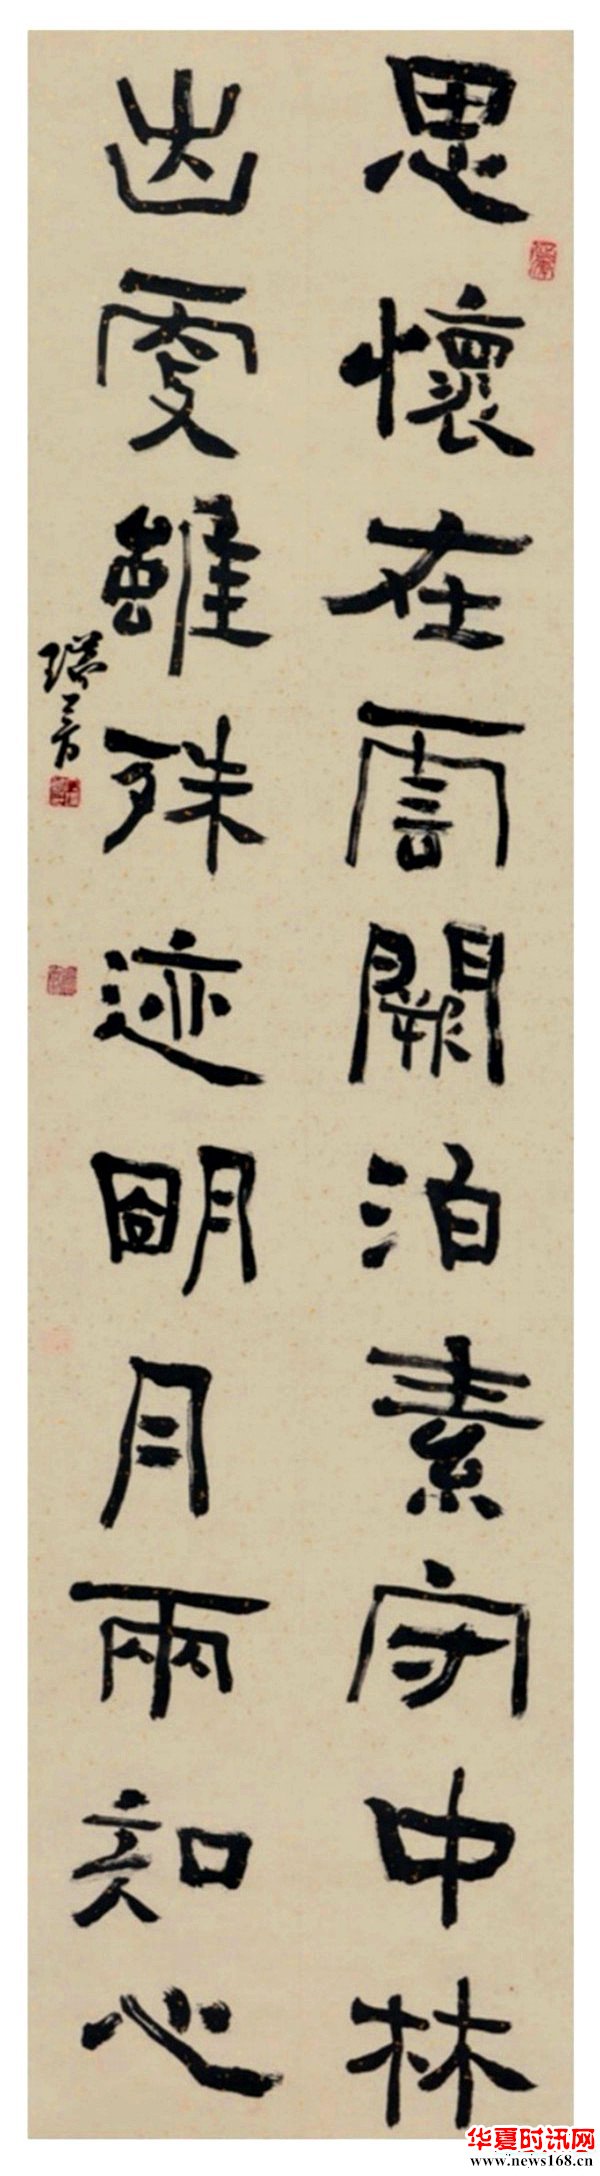 思懷在雲闕泊素守中林
出處雖殊迹明月兩知心
华夏时讯网
www.news168.cn